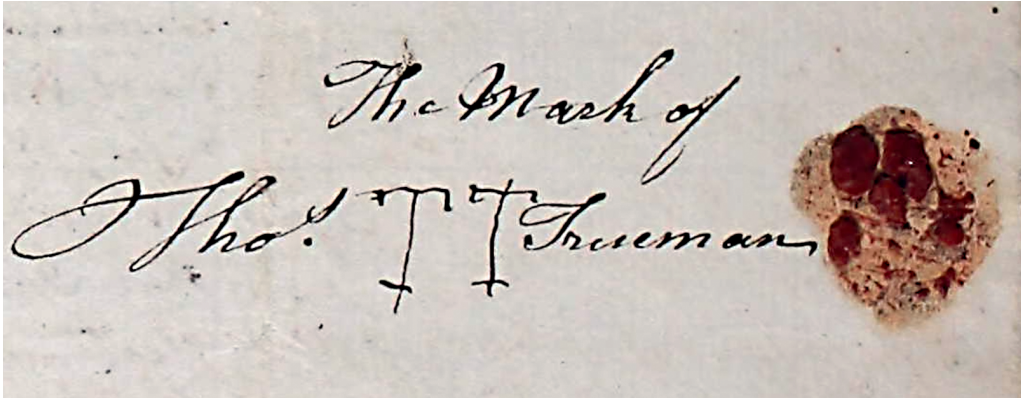 The Mark of
Thos. TT Trueman